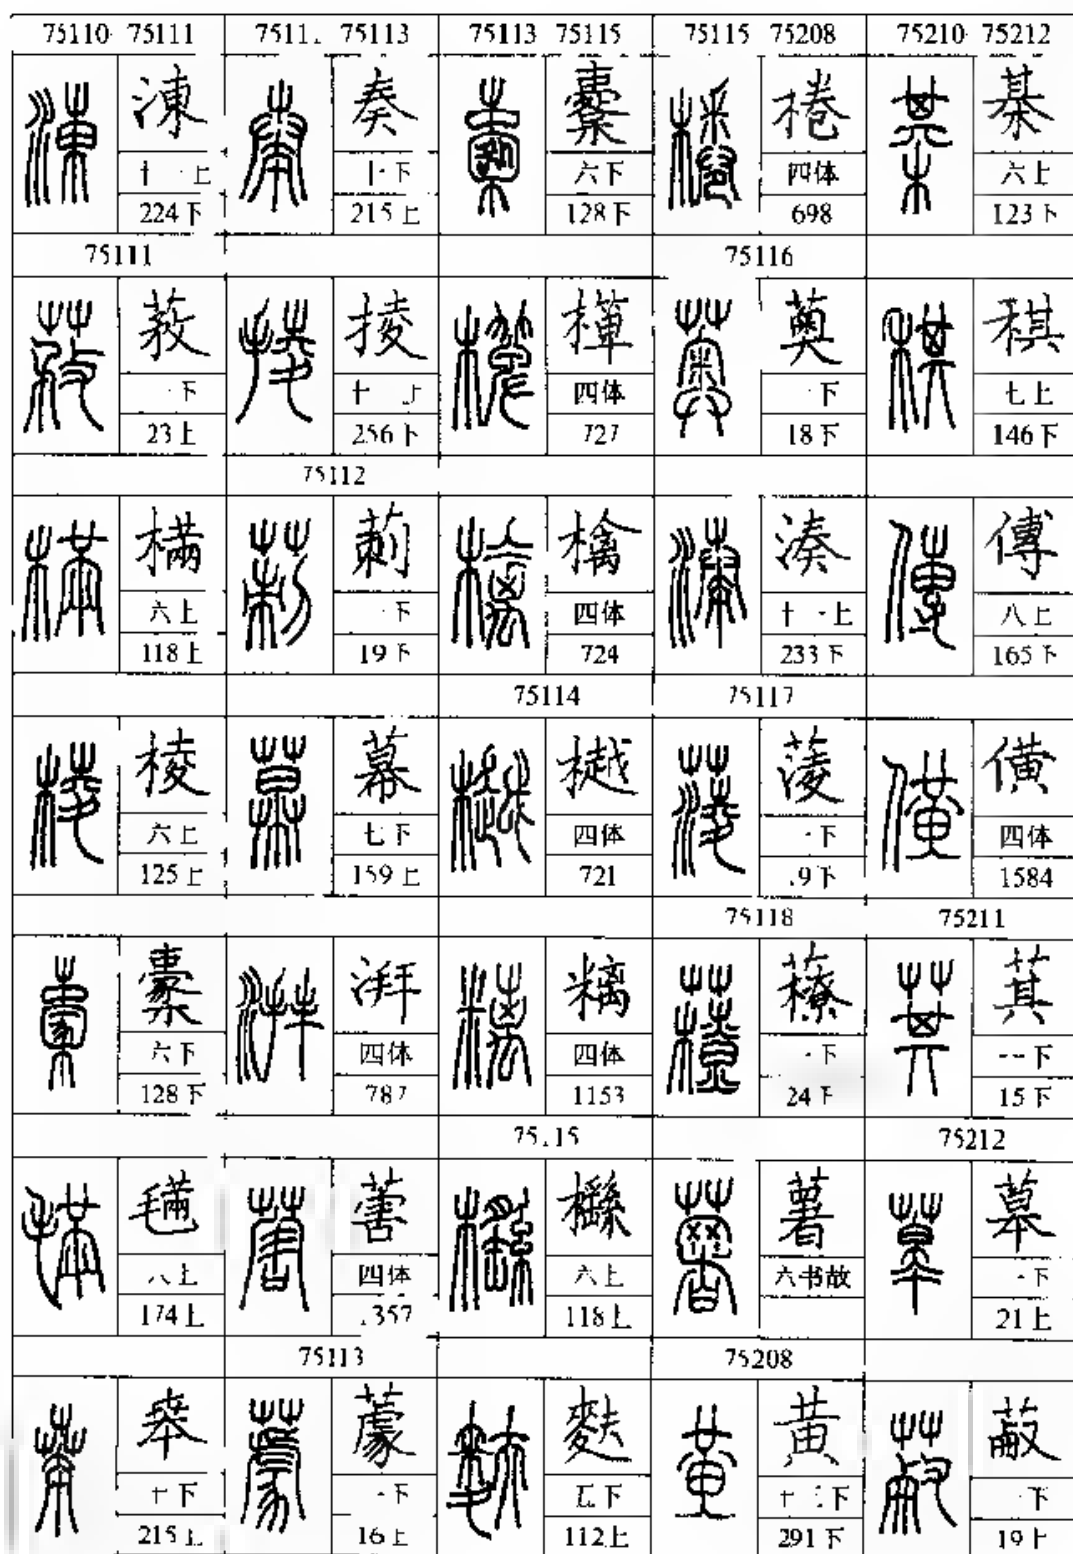 75110 75111
涷
十一上
224下
75111
蔱
下
23上
樠
六上
118上
棱
六上
125上
橐
六下
128下
𣯩
八上
174上
𠦪
十下
215上
75113
奏
十下
215上
掕
十
256下
75112
莿
下
19下
幕
七下
159上
湃
四体
787
四体
357
75113
蒙
下
16上
75113 75115
橐
六下
128下
樿
四体
727
檎
四体
724
75114
樾
四体
721
四体
1153
75115
櫾
六上
118上
麩
五下
112上
75115 75208
棬
四体
698
75116
薁
下
18下
湊
十一上
233下
75117
蓤
下
9下
75118
下
24下
薯
六书故
75208
黄
十三下
291下
75210 75212
綦
六上
123下
稘
七上
146下
傅
八上
165下
僙
四体
1584
75211
萁
一下
15下
75212
墓
下
21上
下
19上